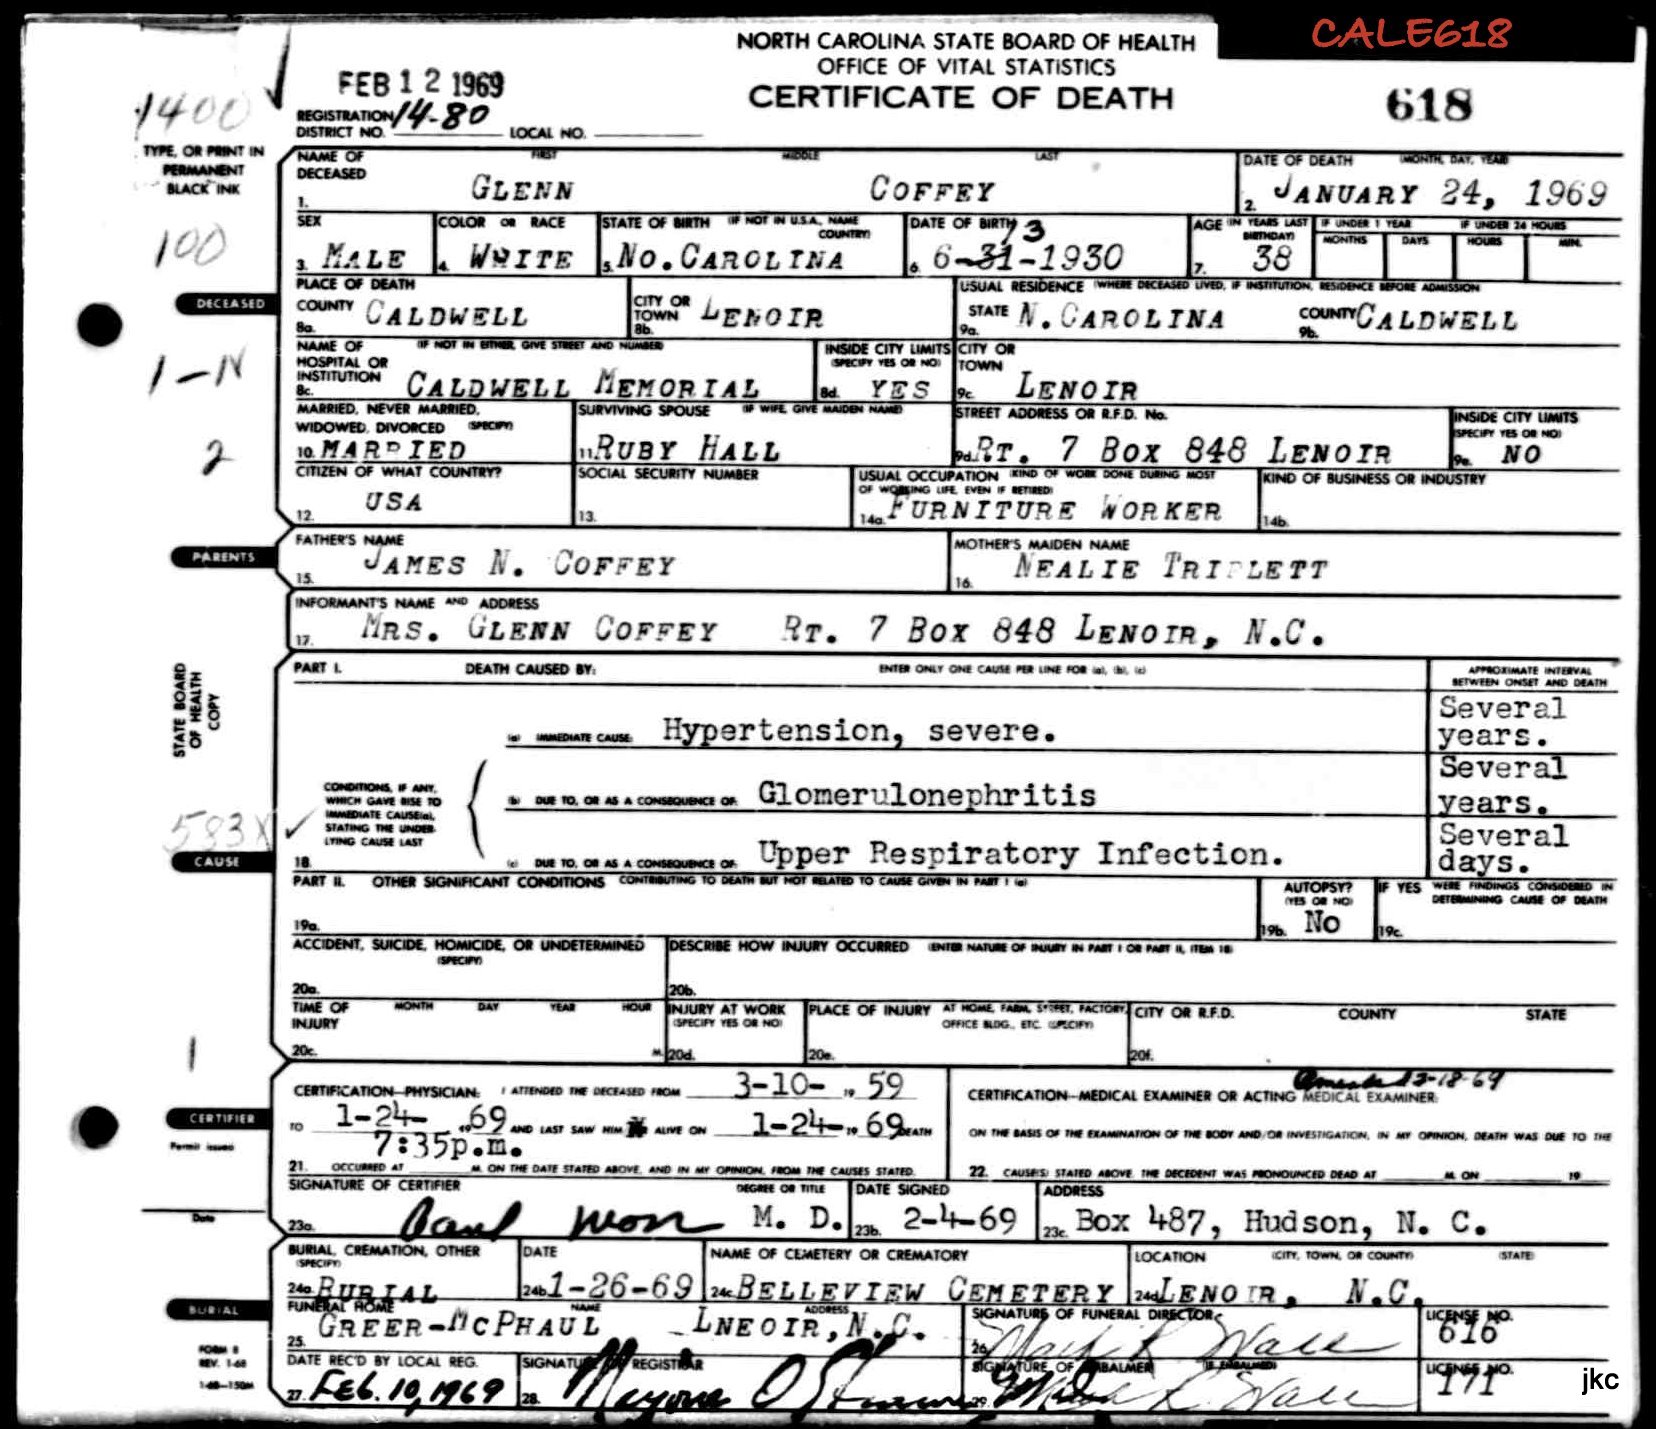 CALE618
NORTH CAROLINA STATE BOARD OF HEALTH
OFFICE OF VITAL STATISTICS
CERTIFICATE OF DEATH
618
FEB 12 1969
1400
REGISTRATION DISTRICT NO. 14-80 LOCAL NO.
TYPE, OR PRINT IN PERMANENT BLACK INK
NAME OF DECEASED FIRST MIDDLE LAST
1. GLENN COFFEY
DATE OF DEATH (MONTH, DAY, YEAR)
2. JANUARY 24, 1969
100
SEX
3. MALE
COLOR OR RACE
4. WHITE
STATE OF BIRTH (IF NOT IN U.S.A., NAME COUNTRY)
5. NO. CAROLINA
DATE OF BIRTH
6. 6-31-1930
13
AGE (IN YEARS LAST BIRTHDAY)
7. 38
IF UNDER 1 YEAR
MONTHS DAYS
IF UNDER 24 HOURS
HOURS MIN.
DECEASED
PLACE OF DEATH
COUNTY CALDWELL
8a.
CITY OR TOWN LENOIR
8b.
USUAL RESIDENCE (WHERE DECEASED LIVED, IF INSTITUTION, RESIDENCE BEFORE ADMISSION
STATE N. CAROLINA
9a.
COUNTY CALDWELL
9b.
1-N
NAME OF HOSPITAL OR INSTITUTION (IF NOT IN EITHER, GIVE STREET AND NUMBER)
8c. CALDWELL MEMORIAL
INSIDE CITY LIMITS (SPECIFY YES OR NO)
8d. YES
CITY OR TOWN
9c. LENOIR
2
MARRIED, NEVER MARRIED, WIDOWED, DIVORCED (SPECIFY)
10. MARRIED
SURVIVING SPOUSE (IF WIFE, GIVE MAIDEN NAME)
11. RUBY HALL
STREET ADDRESS OR R.F.D. No.
9d. RT. 7 BOX 848 LENOIR
INSIDE CITY LIMITS (SPECIFY YES OR NO)
9e. NO
CITIZEN OF WHAT COUNTRY?
12. USA
SOCIAL SECURITY NUMBER
13.
USUAL OCCUPATION (KIND OF WORK DONE DURING MOST OF WORKING LIFE, EVEN IF RETIRED)
14a. FURNITURE WORKER
KIND OF BUSINESS OR INDUSTRY
14b.
PARENTS
FATHER'S NAME
15. JAMES N. COFFEY
MOTHER'S MAIDEN NAME
16. NEALIE TRIPLETT
INFORMANT'S NAME AND ADDRESS
17. MRS. GLENN COFFEY RT. 7 BOX 848 LENOIR, N.C.
STATE BOARD OF HEALTH COPY
PART I. DEATH CAUSED BY: ENTER ONLY ONE CAUSE PER LINE FOR (a), (b), (c)
APPROXIMATE INTERVAL BETWEEN ONSET AND DEATH
(a) IMMEDIATE CAUSE: Hypertension, severe.
Several years.
CONDITIONS, IF ANY, WHICH GAVE RISE TO IMMEDIATE CAUSE(a), STATING THE UNDERLYING CAUSE LAST
(b) DUE TO, OR AS A CONSEQUENCE OF: Glomerulonephritis
Several years.
583X
CAUSE
18.
(c) DUE TO, OR AS A CONSEQUENCE OF: Upper Respiratory Infection.
Several days.
PART II. OTHER SIGNIFICANT CONDITIONS CONTRIBUTING TO DEATH BUT NOT RELATED TO CAUSE GIVEN IN PART I (a)
19a.
AUTOPSY? (YES OR NO)
19b. No
IF YES WERE FINDINGS CONSIDERED IN DETERMINING CAUSE OF DEATH
19c.
ACCIDENT, SUICIDE, HOMICIDE, OR UNDETERMINED (SPECIFY)
20a.
DESCRIBE HOW INJURY OCCURRED (ENTER NATURE OF INJURY IN PART I OR PART II, ITEM 18)
20b.
TIME OF INJURY MONTH DAY YEAR HOUR
20c. M.
INJURY AT WORK (SPECIFY YES OR NO)
20d.
PLACE OF INJURY AT HOME, FARM, STREET, FACTORY, OFFICE BLDG., ETC. (SPECIFY)
20e.
CITY OR R.F.D. COUNTY STATE
20f.
1
CERTIFIER
Permit issued
Date
CERTIFICATION—PHYSICIAN: I ATTENDED THE DECEASED FROM 3-10- 19 59
TO 1-24- 19 69 AND LAST SAW HIM ALIVE ON 1-24- 19 69 DEATH
7:35p.m.
21. OCCURRED AT M. ON THE DATE STATED ABOVE, AND IN MY OPINION, FROM THE CAUSES STATED.
2-18-69
CERTIFICATION—MEDICAL EXAMINER OR ACTING MEDICAL EXAMINER:
ON THE BASIS OF THE EXAMINATION OF THE BODY AND/OR INVESTIGATION, IN MY OPINION, DEATH WAS DUE TO THE
22. CAUSE(S) STATED ABOVE. THE DECEDENT WAS PRONOUNCED DEAD AT M. ON 19
SIGNATURE OF CERTIFIER DEGREE OR TITLE
23a. M. D.
DATE SIGNED
23b. 2-4-69
ADDRESS
23c. Box 487, Hudson, N. C.
BURIAL
BURIAL, CREMATION, OTHER (SPECIFY)
24a. BURIAL
DATE
24b. 1-26-69
NAME OF CEMETERY OR CREMATORY
24c. BELLEVIEW CEMETERY
LOCATION (CITY, TOWN, OR COUNTY) (STATE)
24d. LENOIR, N.C.
FUNERAL HOME NAME ADDRESS
25. GREER-MCPHAUL LNEOIR, N.C.
SIGNATURE OF FUNERAL DIRECTOR
26.
LICENSE NO.
616
FORM 8
REV. 1-68
1-68—150M
DATE REC'D BY LOCAL REG.
27. FEB. 10, 1969
SIGNATURE REGISTRAR
28.
SIGNATURE OF EMBALMER (IF EMBALMED)
29.
LICENSE NO.
171
jkc